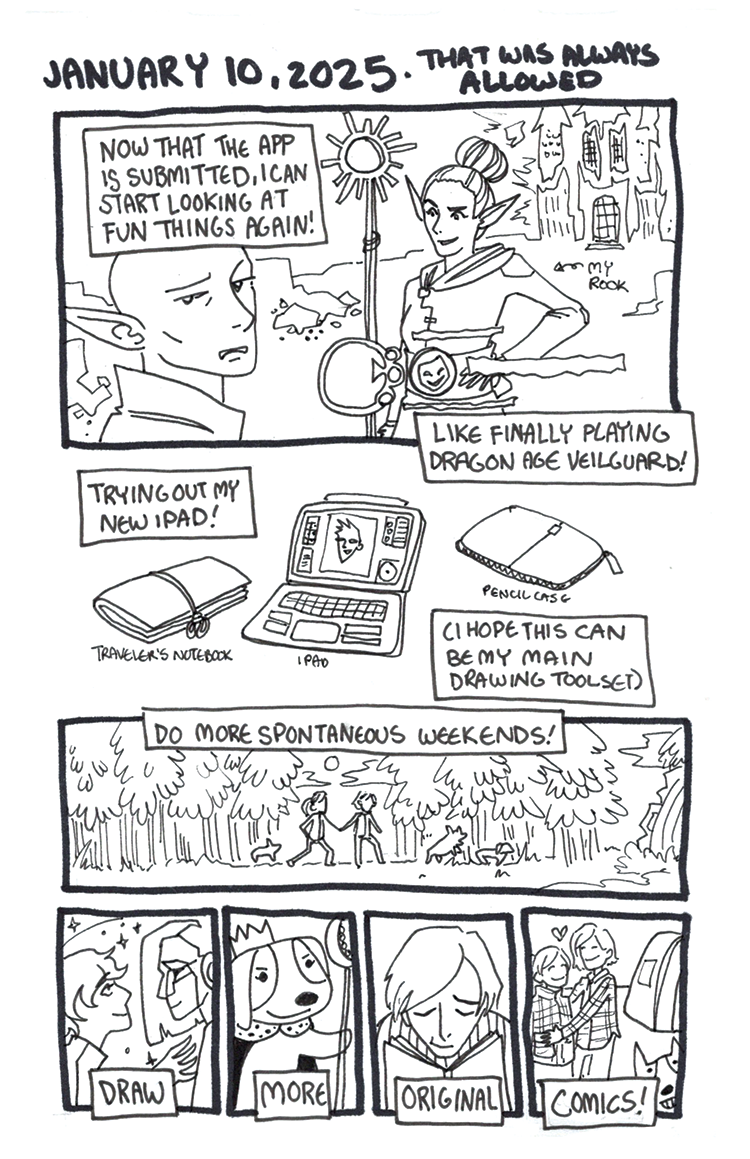 JANUARY 10, 2025. THAT WAS ALWAYS
ALLOWED
NOW THAT THE APP
IS SUBMITTED, I CAN
START LOOKING AT
FUN THINGS AGAIN!
MY
ROOK
LIKE FINALLY PLAYING
DRAGON AGE VEILGUARD!
TRYING OUT MY
NEW IPAD!
TRAVELER'S NOTEBOOK
IPAD
PENCIL CASE
(I HOPE THIS CAN
BE MY MAIN
DRAWING TOOLSET)
DO MORE SPONTANEOUS WEEKENDS!
DRAW
MORE
ORIGINAL
COMICS!